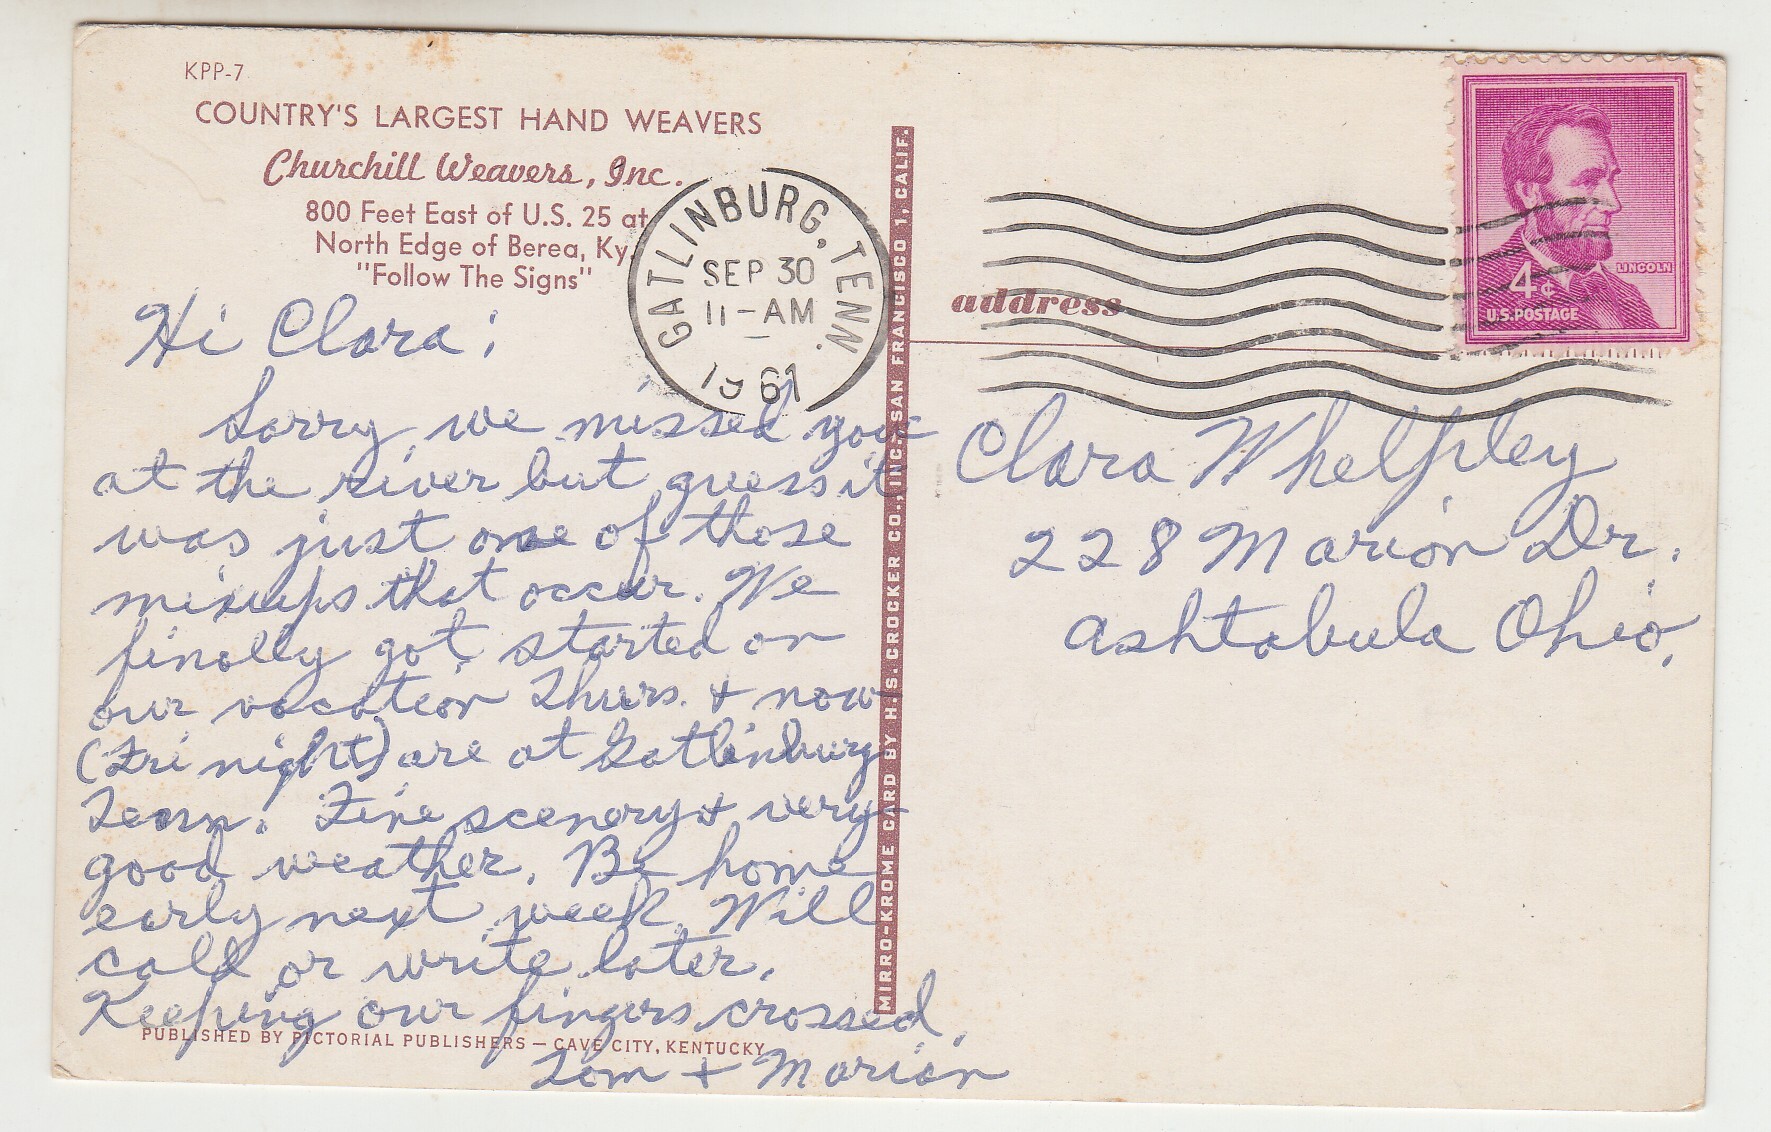 KPP-7
COUNTRY'S LARGEST HAND WEAVERS
Churchill Weavers, Inc.
800 Feet East of U.S. 25 at
North Edge of Berea, Ky.
"Follow The Signs"
GATLINBURG, TENN.
SEP 30
11-AM
1961
address
LINCOLN
4¢
U.S. POSTAGE
Hi Clara;
Sorry we missed you
at the river but guess it
was just one of those
mixups that occur. We
finally got started on
our vacation Thurs. + now
(Fri night) are at Gatlinburg
Tenn. Fine scenery + very
good weather. Be home
early next week. Will
call or write later.
Keeping our fingers crossed.
Tom + Marion
Clara Whelpley
228 Marion Dr.
Ashtabula Ohio.
MIRRO-KROME CARD BY H.S. CROCKER CO., INC., SAN FRANCISCO 1, CALIF.
PUBLISHED BY PICTORIAL PUBLISHERS — CAVE CITY, KENTUCKY